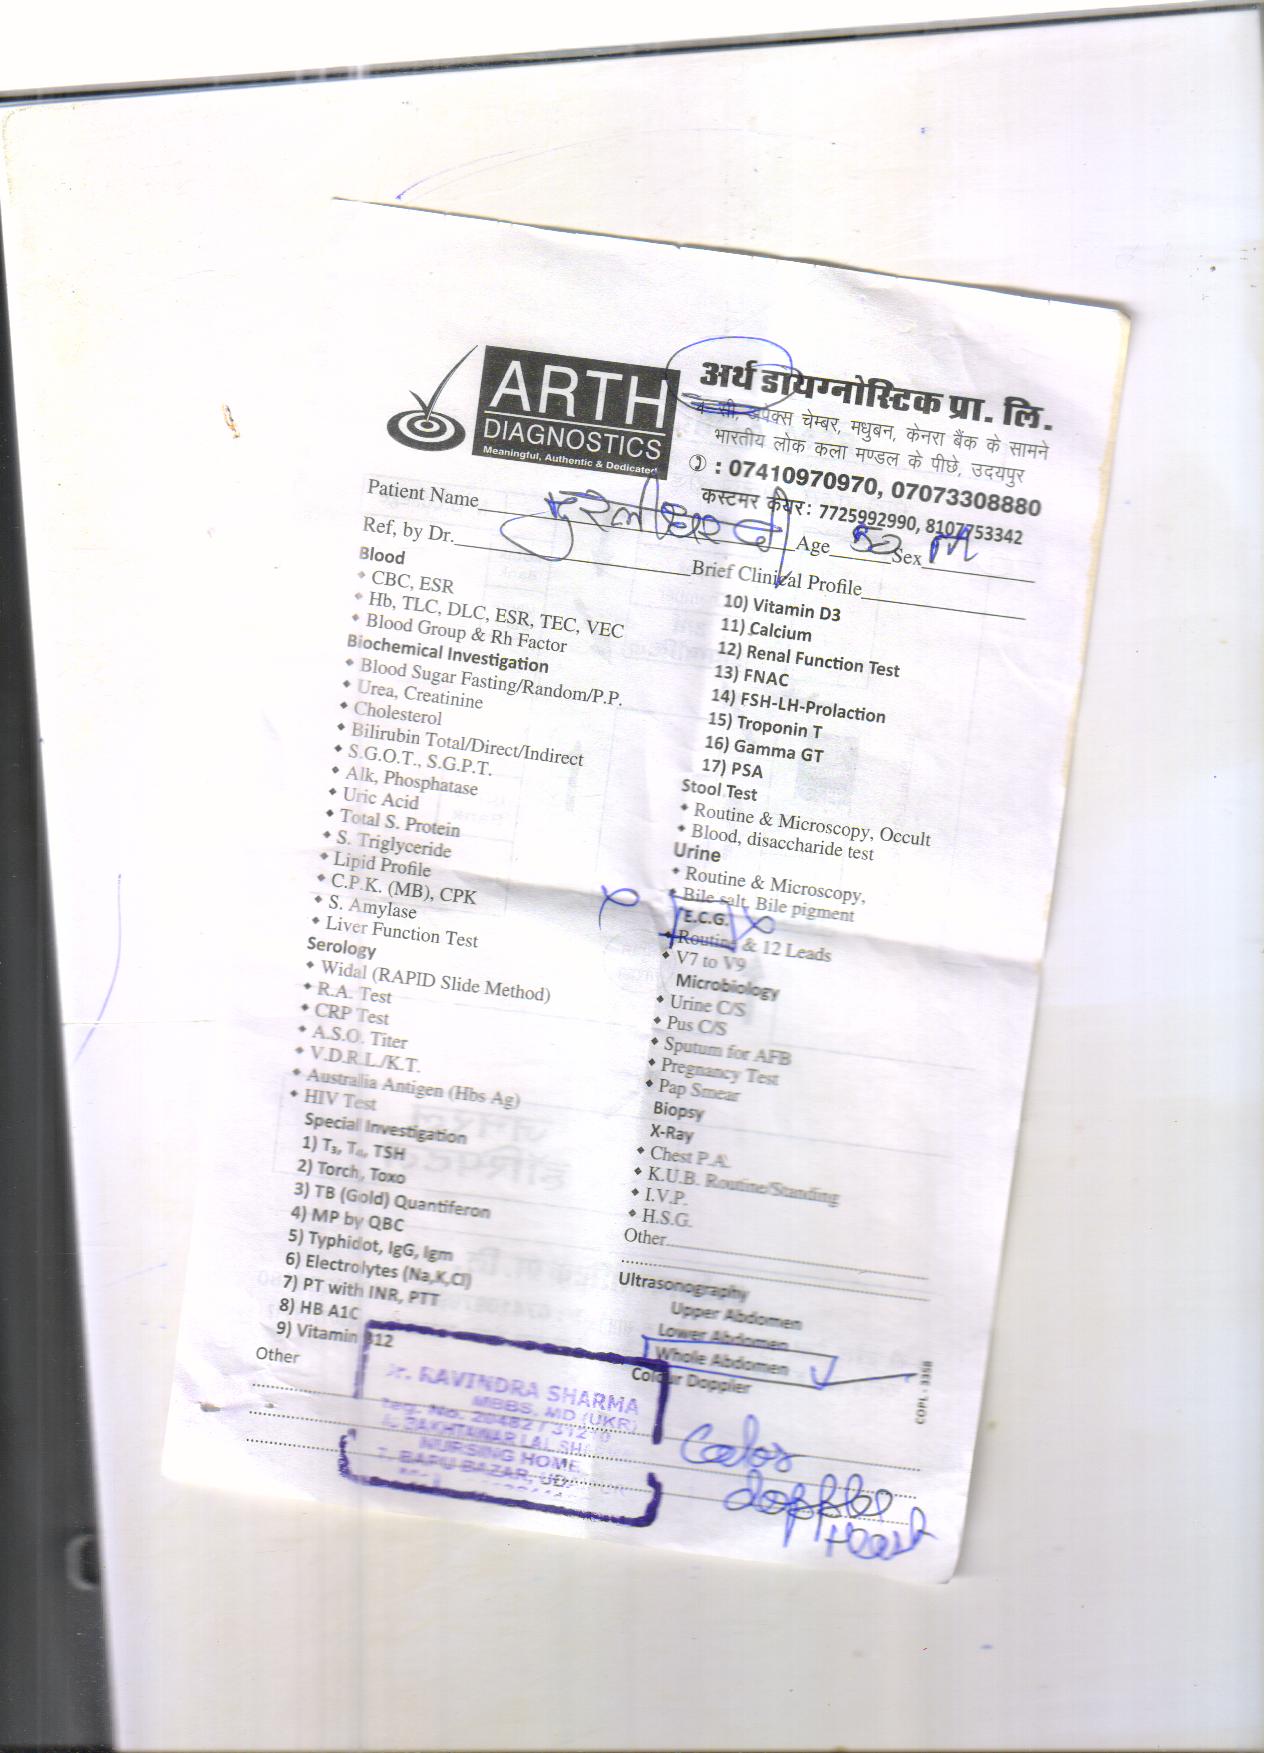 ARTH
DIAGNOSTICS
Meaningful, Authentic & Dedicated
अर्थ डायग्नोस्टिक प्रा. लि.
सी, अपेक्स चेम्बर, मधुबन, केनरा बैंक के सामने
भारतीय लोक कला मण्डल के पीछे, उदयपुर
: 07410970970, 07073308880
कस्टमर केयर: 7725992990, 8107753342
Patient Name Age 50 Sex M
Ref, by Dr. Brief Clinical Profile
Blood
CBC, ESR
Hb, TLC, DLC, ESR, TEC, VEC
Blood Group & Rh Factor
Biochemical Investigation
Blood Sugar Fasting/Random/P.P.
Urea, Creatinine
Cholesterol
Bilirubin Total/Direct/Indirect
S.G.O.T., S.G.P.T.
Alk, Phosphatase
Uric Acid
Total S. Protein
S. Triglyceride
Lipid Profile
C.P.K. (MB), CPK
S. Amylase
Liver Function Test
Serology
Widal (RAPID Slide Method)
R.A. Test
CRP Test
A.S.O. Titer
V.D.R.L./K.T.
Australia Antigen (Hbs Ag)
HIV Test
Special Investigation
1) T₃, T₄, TSH
2) Torch, Toxo
3) TB (Gold) Quantiferon
4) MP by QBC
5) Typhidot, IgG, Igm
6) Electrolytes (Na,K,Cl)
7) PT with INR, PTT
8) HB A1C
9) Vitamin B12
Other
10) Vitamin D3
11) Calcium
12) Renal Function Test
13) FNAC
14) FSH-LH-Prolaction
15) Troponin T
16) Gamma GT
17) PSA
Stool Test
Routine & Microscopy, Occult
Blood, disaccharide test
Urine
Routine & Microscopy,
Bile salt, Bile pigment
E.C.G.
Routine & 12 Leads
V7 to V9
Microbiology
Urine C/S
Pus C/S
Sputum for AFB
Pregnancy Test
Pap Smear
Biopsy
X-Ray
Chest P.A.
K.U.B. Routine/Standing
I.V.P.
H.S.G.
Other
Ultrasonography
Upper Abdomen
Lower Abdomen
Whole Abdomen
Colour Doppler
COPL - 3358
Dr. RAVINDRA SHARMA
MBBS, MD (UKR)
NURSING HOME
BAPU BAZAR,
Color
doppler
Heart